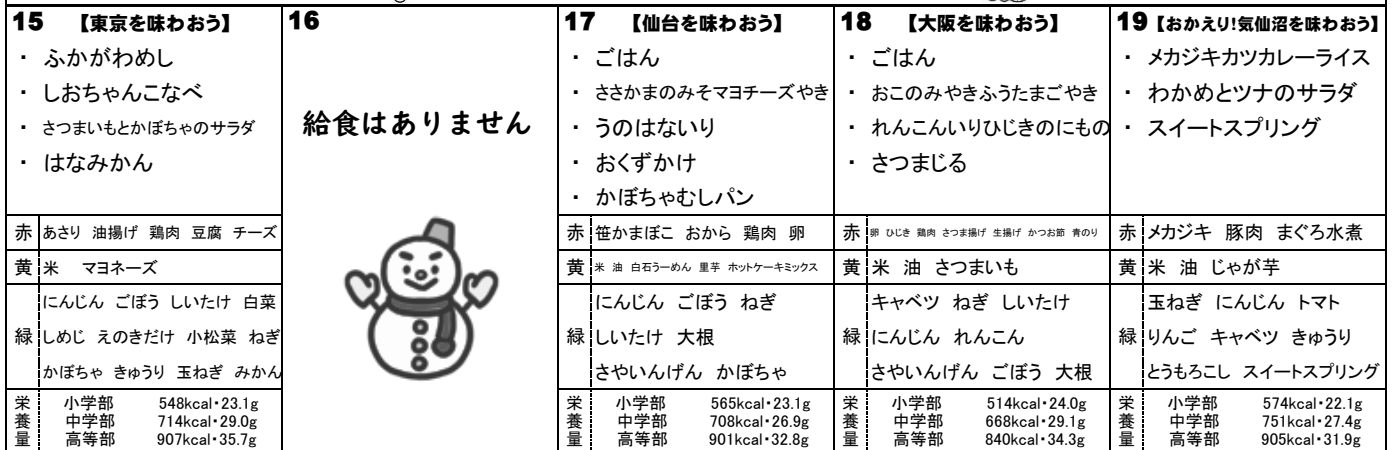 15 【東京を味わおう】
・ ふかがわめし
・ しおちゃんこなべ
・ さつまいもとかぼちゃのサラダ
・ はなみかん
赤 あさり 油揚げ 鶏肉 豆腐 チーズ
黄 米 マヨネーズ
緑 にんじん ごぼう しいたけ 白菜
しめじ えのきだけ 小松菜 ねぎ
かぼちゃ きゅうり 玉ねぎ みかん
栄養量 小学部 548kcal・23.1g
中学部 714kcal・29.0g
高等部 907kcal・35.7g
16
給食はありません
17 【仙台を味わおう】
・ ごはん
・ ささかまのみそマヨチーズやき
・ うのはないり
・ おくずかけ
・ かぼちゃむしパン
赤 笹かまぼこ おから 鶏肉 卵
黄 米 油 白石うーめん 里芋 ホットケーキミックス
緑 にんじん ごぼう ねぎ
しいたけ 大根
さやいんげん かぼちゃ
栄養量 小学部 565kcal・23.1g
中学部 708kcal・26.9g
高等部 901kcal・32.8g
18 【大阪を味わおう】
・ ごはん
・ おこのみやきふうたまごやき
・ れんこんいりひじきのにもの
・ さつまじる
赤 卵 ひじき 鶏肉 さつま揚げ 生揚げ かつお節 青のり
黄 米 油 さつまいも
緑 キャベツ ねぎ しいたけ
にんじん れんこん
さやいんげん ごぼう 大根
栄養量 小学部 514kcal・24.0g
中学部 668kcal・29.1g
高等部 840kcal・34.3g
19 【おかえり!気仙沼を味わおう】
・ メカジキカツカレーライス
・ わかめとツナのサラダ
・ スイートスプリング
赤 メカジキ 豚肉 まぐろ水煮
黄 米 油 じゃが芋
緑 玉ねぎ にんじん トマト
りんご キャベツ きゅうり
とうもろこし スイートスプリング
栄養量 小学部 574kcal・22.1g
中学部 751kcal・27.4g
高等部 905kcal・31.9g